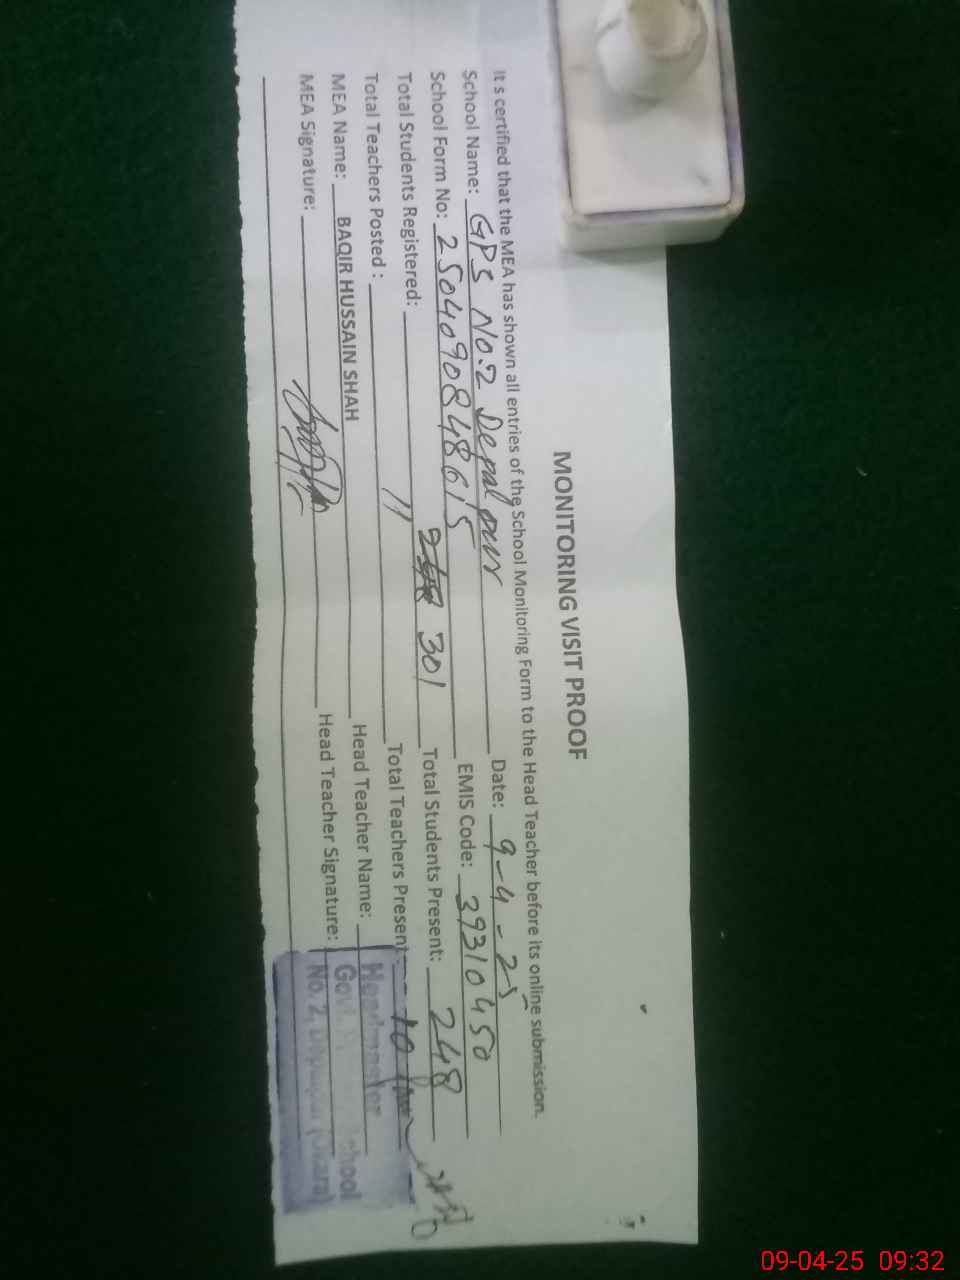 MONITORING VISIT PROOF
It s certified that the MEA has shown all entries of the School Monitoring Form to the Head Teacher before its online submission.
School Name: GPS No.2 Depalpur Date: 9-4-25
School Form No: 2504090848615 EMIS Code: 39310450
Total Students Registered: 248 301 Total Students Present: 248
Total Teachers Posted : 11 Total Teachers Present 10
MEA Name: BAQIR HUSSAIN SHAH Head Teacher Name:
MEA Signature: Head Teacher Signature:
Headmaster
Govt. School
No. 2,
09-04-25 09:32